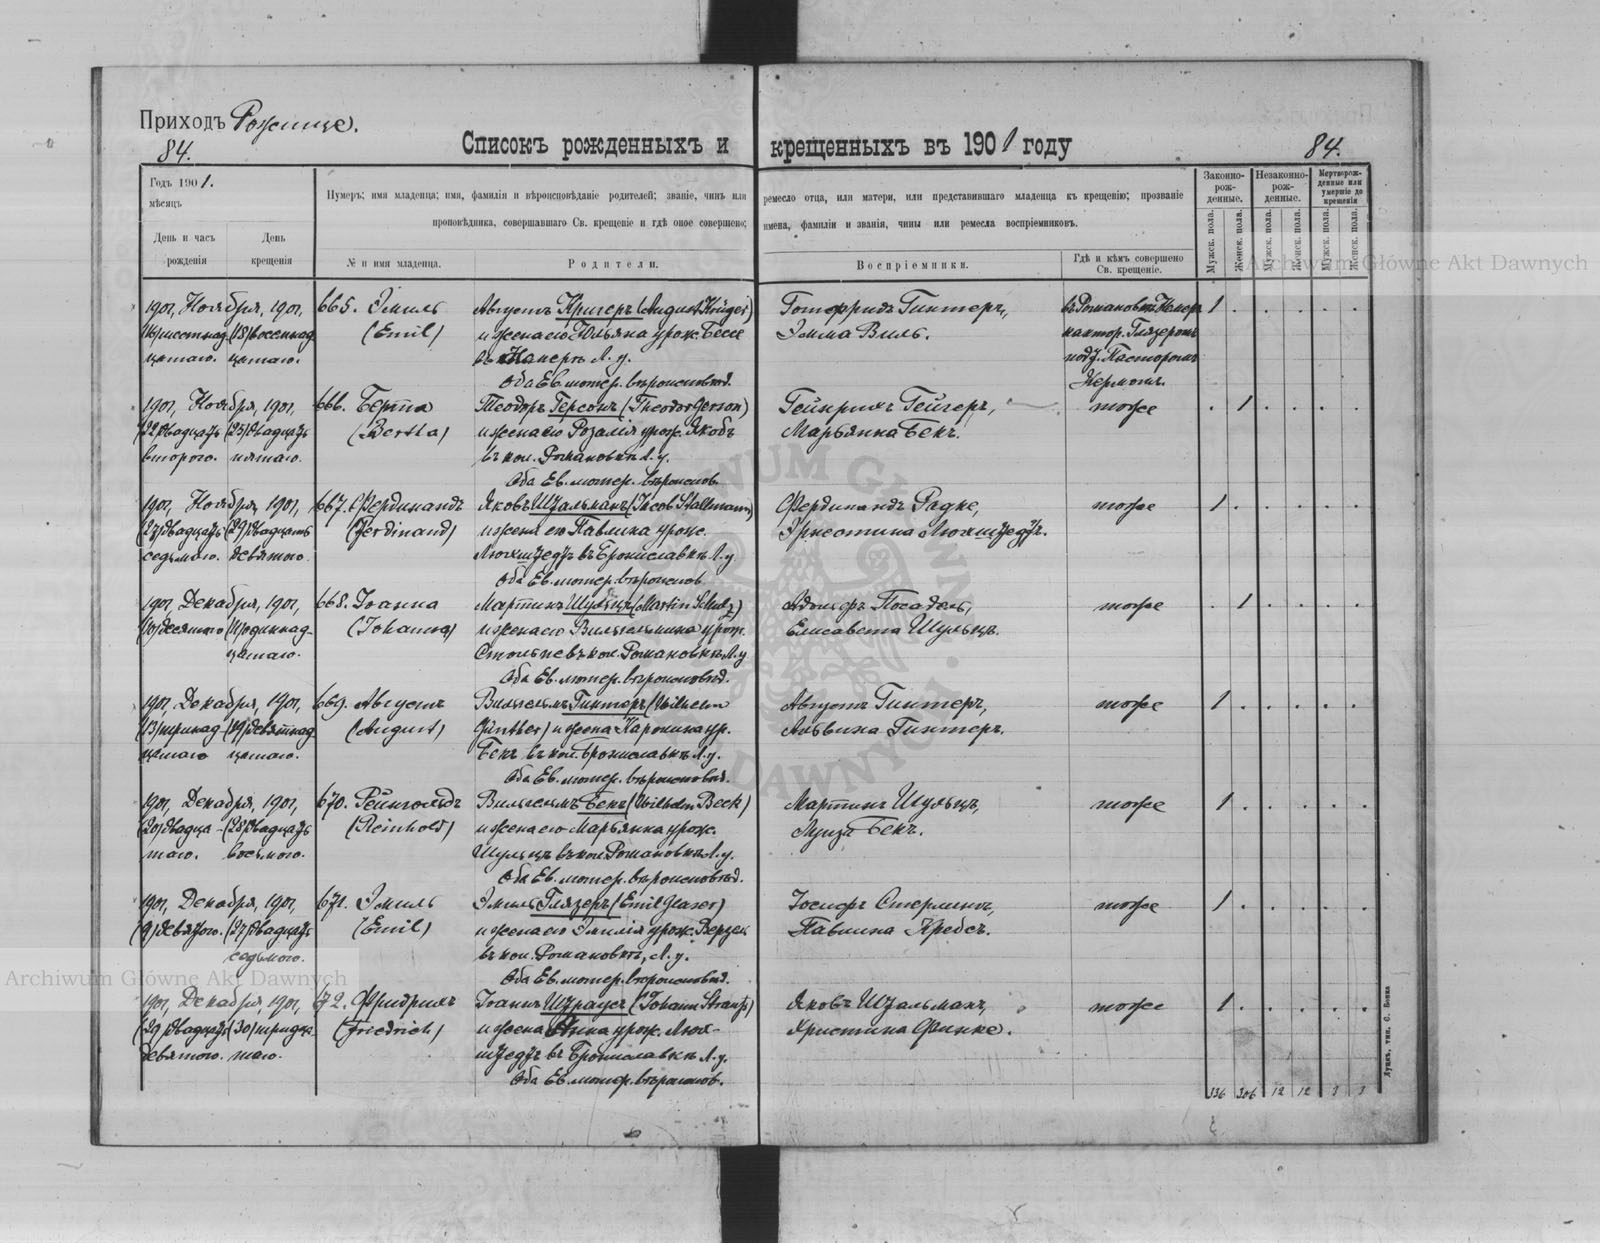 Приходъ Рожище.
84.
Списокъ рожденныхъ и крещенныхъ въ 1901 году
84.
Годъ 1901.
мѣсяцъ
День и часъ рожденія
День крещенія
Нумеръ; имя младенца; имя, фамилія и вѣроисповѣданіе родителей; званіе, чинъ или ремесло отца, или матери, или представившаго младенца къ крещенію; прозваніе
проповѣдника, совершавшаго Св. крещеніе и гдѣ оное совершено; имена, фамиліи и званія, чины или ремесла воспріемниковъ.
№ и имя младенца.
Родители.
Воспріемники.
Гдѣ и кѣмъ совершено Св. крещеніе.
Законно-рож-денные.
Незаконно-рож-денные.
Мертворож-денные или умершіе до крещенія
Мужск. пола.
Женск. пола.
Мужск. пола.
Женск. пола.
Мужск. пола.
Женск. пола.
1901, Ноября, 1901, 665. Эмиль Августъ Кригеръ (August Krüger) Готфридъ Гинтеръ, 1
(16) шестнад (18) восемнад (Emil) и жена его Юльяна урож. Бессе Эмма Виль.
цатаго. цатаго.
Оба Ев. лютер. вѣроисповѣд.
1901, Ноября, 1901, 666. Берта Теодоръ Герсонъ (Theodor Gerson) Гейнрихъ Гейгеръ, тоже 1
(22) двадцать (25) двадцать (Bertha) и жена его Розалія урож. Якобъ Марьянна Бекъ.
второго. пятаго. въ кол. Романовкѣ Л. у.
Оба Ев. лютер. вѣроисповѣд.
1901, Ноября, 1901, 667. Фердинандъ Яковъ Штальманъ (Jacob Stallmann) Фердинандъ Радке, тоже 1
(27) двадцать (29) двадцать (Ferdinand) и жена его Павлина урож. Эрнестина Люхштедтъ.
седьмаго. девятого. Люхштедтъ въ Брониславкѣ Л. у.
Оба Ев. лютер. вѣроисповѣд.
1901, Декабря, 1901, 668. Іоанна Мартинъ Шульцъ (Martin Schulz) Адольфъ Посадель, тоже 1
(10) десятаго (11) одиннад- (Johanna) и жена его Вильгельмина урож. Елисавета Шульцъ.
цатаго. въ кол. Романовкѣ Л. у
Оба Ев. лютер. вѣроисповѣд.
1901, Декабря, 1901, 669. Августъ Вильгельмъ Гинтеръ (Wilhelm Августъ Гинтеръ, тоже 1
(13) тринад (19) девятнад (August) Günther) и жена Каролина ур. Альвина Гинтеръ.
цатаго цатаго. Бекъ въ кол. Брониславкѣ Л. у.
Оба Ев. лютер. вѣроисповѣд.
1901, Декабря, 1901, 670. Рейнгольдъ Вильгельмъ Бекъ (Wilhelm Beck) Мартинъ Шульцъ, тоже 1
(20) двадца- (28) двадцать (Reinhold) и жена его Марьянна урож. Луиза Бекъ.
таго. восьмого. Шульцъ въ кол. Романовкѣ Л. у.
Оба Ев. лютер. вѣроисповѣд.
1901, Декабря, 1901, 671. Эмиль Эмиль Глязеръ (Emil Glaser) Іосифъ Стерлинъ, тоже 1
(9) девятого. (27) двадцать (Emil) и жена его Эмилія урож. Павлина Кребсъ.
седьмого. въ кол. Романовкѣ, Л. у.
Оба Ев. лютер. вѣроисповѣд.
1901, Декабря, 1901, 672. Фридрихъ Іоганъ Штраусъ (Johann Strauß) Яковъ Штальманъ, тоже 1
(29) двадцать (30) тридца- (Friedrich) и жена Анна урож. Люх- Христина Финке.
девятого. таго. штедтъ въ Брониславкѣ Л. у.
Оба Ев. лютер. вѣроисповѣд.
336 306 12 12 3 3
Луцкъ, тип. С. Бонка
Archiwum Główne Akt Dawnych
Archiwum Główne Akt Dawnych